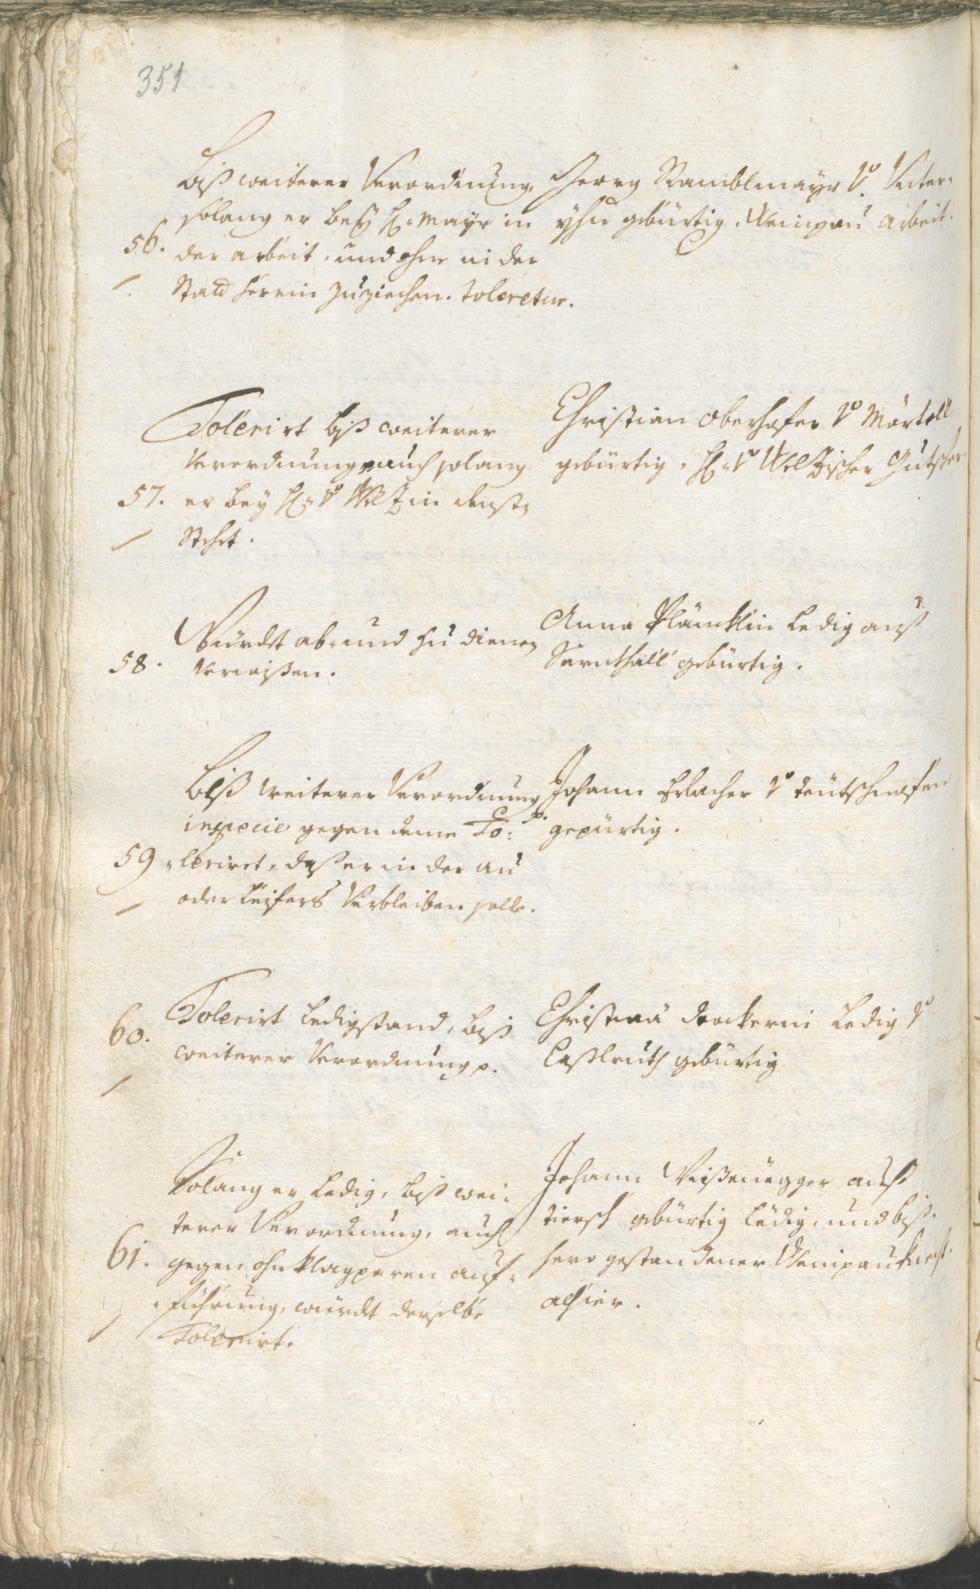 351
Biß weiterer Verordnung,
solang er beÿ H: Mayr in
56. der arbeit, und ohne in der
Statt herein zuziechen. toleretur.
Georg Ramblmayr v: Unter-
yhn gebürtig, Weinpau arbeit.
Tolerirt biß weiterer
Verordnung, auch solang
57. er bey H: v: Welz in dienst
Stehet.
Christian Oberhofer v: Mörtell
gebürtig, H: v: Welzischer Gutscher.
Würdt ab- und zu dienen
58. verwißen.
Anna Plämklin ledig auß
Sarnthall gebürtig.
Biß weiterer Verordnung
in specie gegen deme To:
59 leriret, daß er in der au
oder Leifers verbleiben solle.
Johann Erlacher v: teütschnofen
gepürtig.
60. Tolerirt ledigstand, biß
weiterer Verordnung p.
Christina Dockerin ledig v:
Casslruth gebürtig
Solang er ledig, biß wei-
terer Verordnung, auch
61. gegen ohnklagparen auf-
führung, würdt derselbe
Tolerirt.
Johann Weißenegger auß
tierß gebürtig ledig, und biß-
hero gestandener Weinpauknecht
alhier.